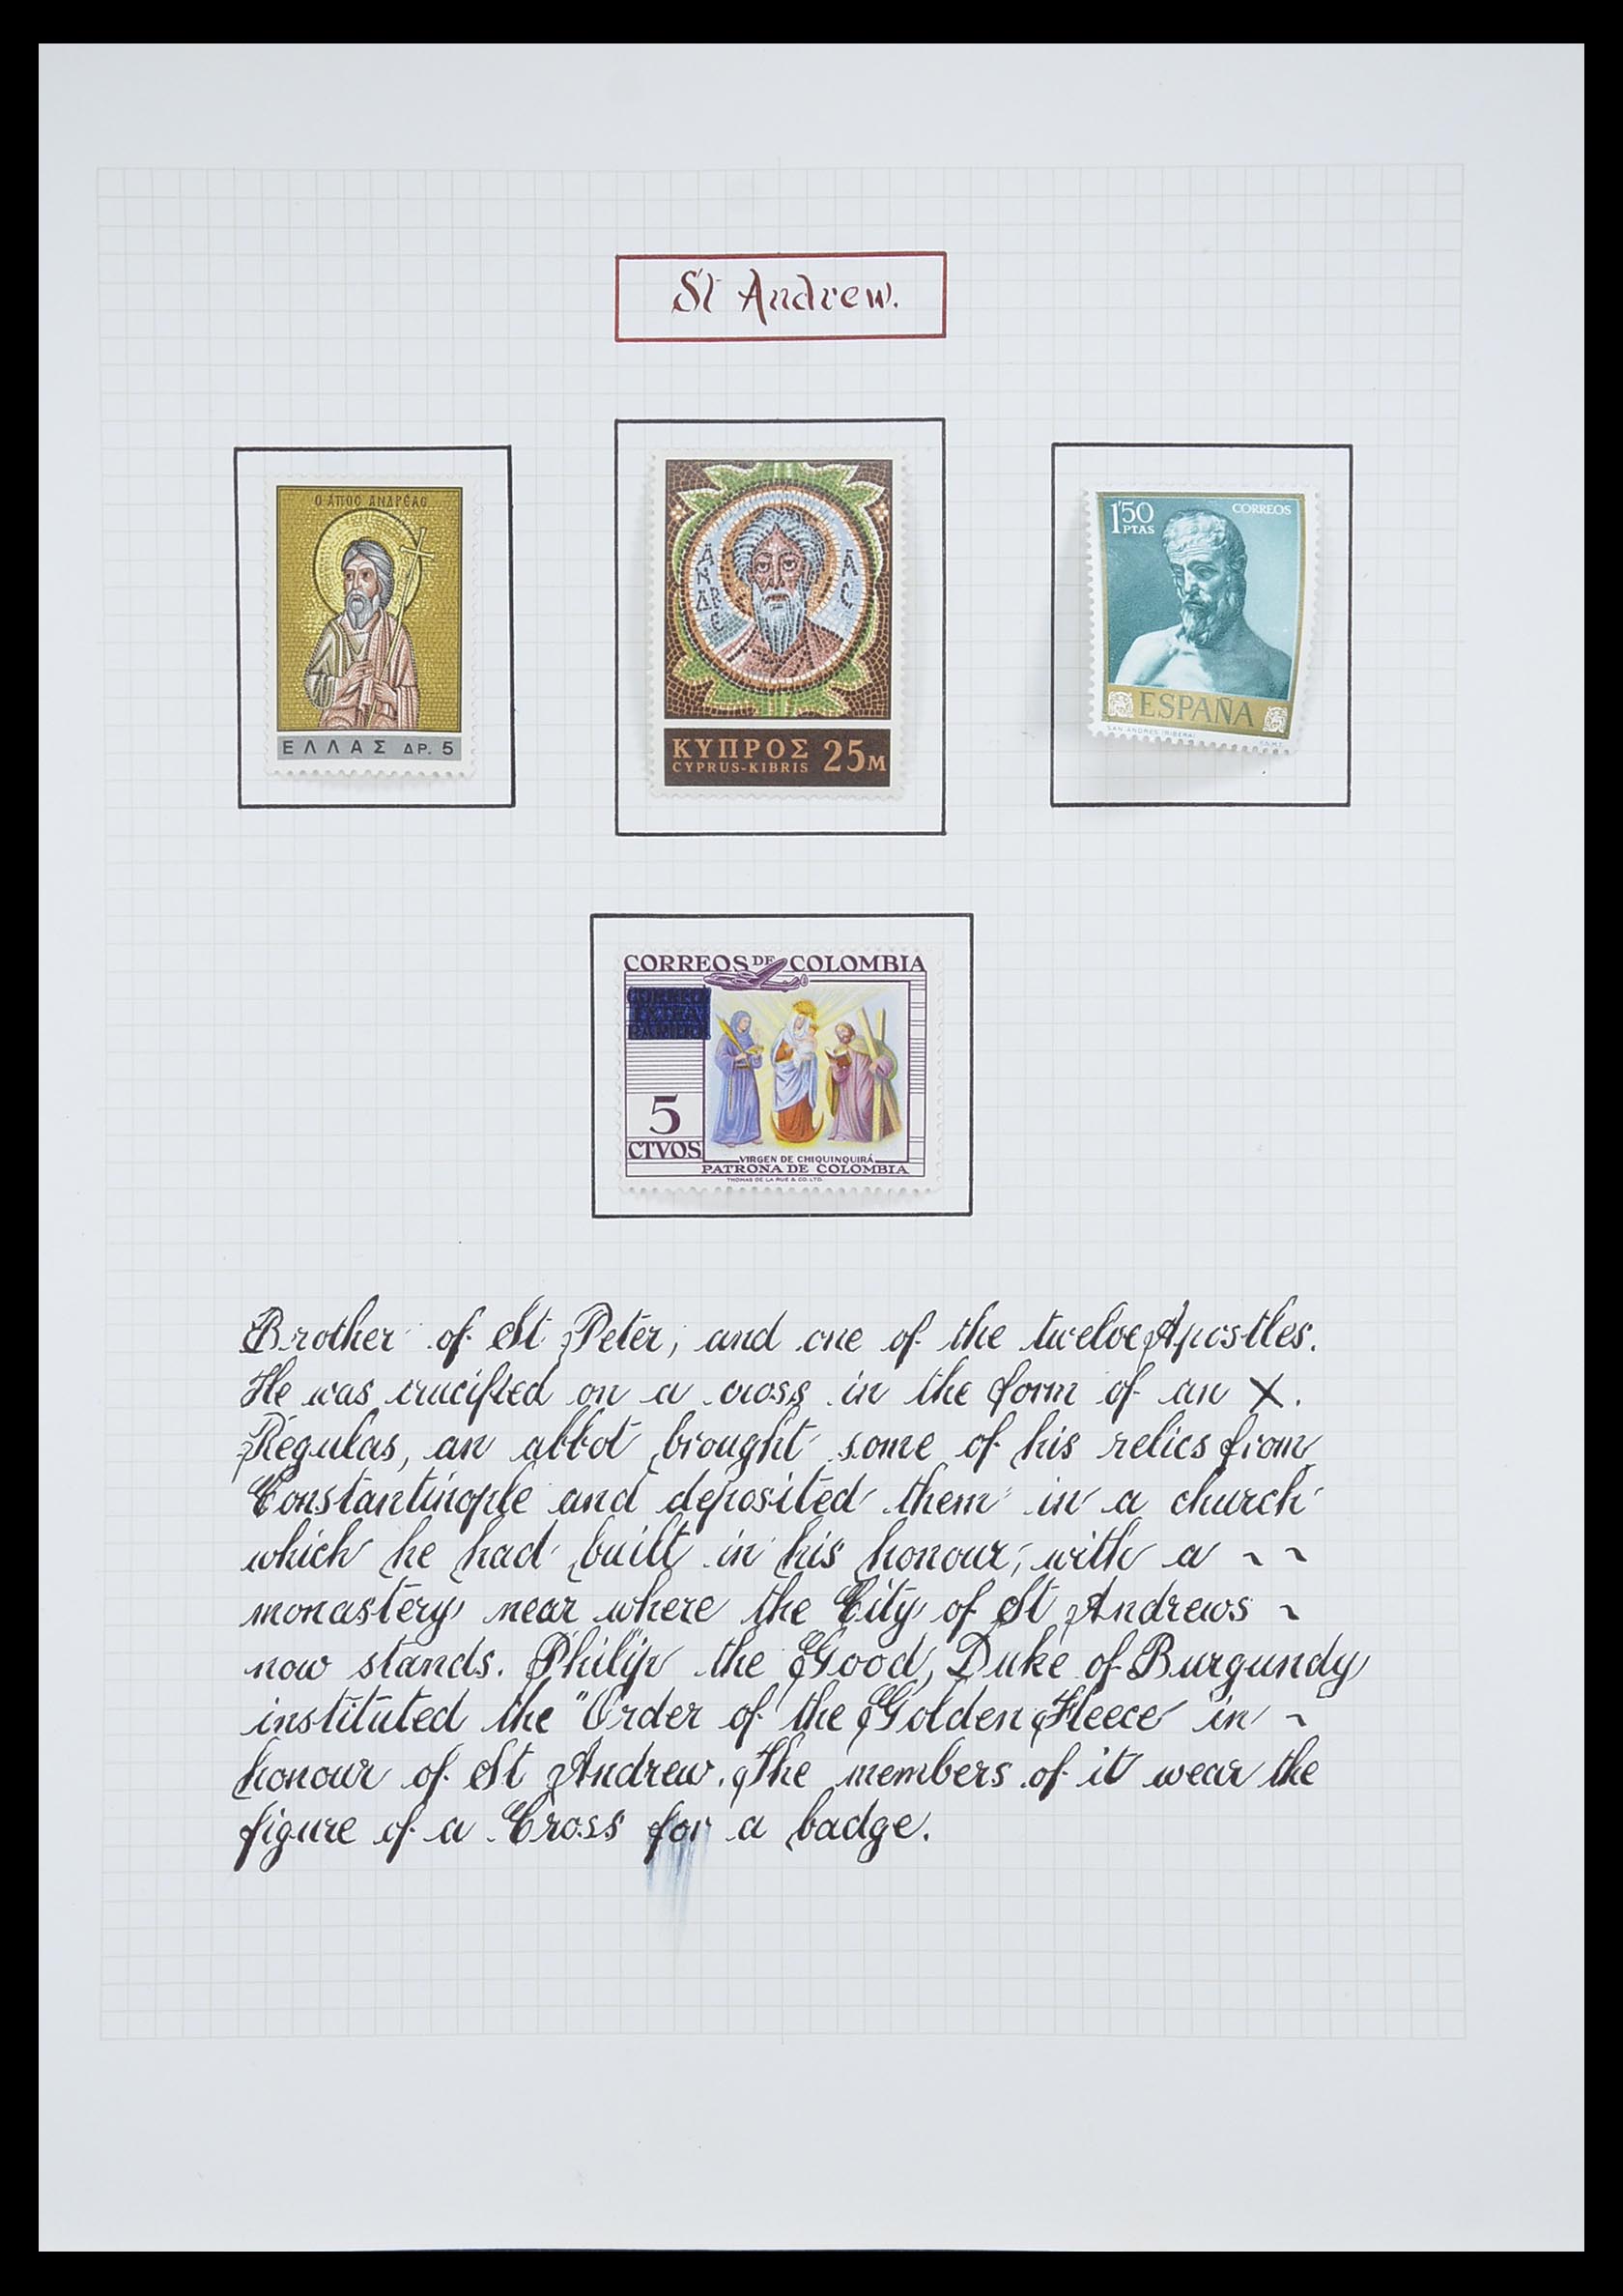 St Andrew.
Ο ΑΠΟC ΑΝΔΡΕΑC
ΕΛΛΑΣ ΔΡ. 5
ΑΝΔΡΕ ΑC
ΚΥΠΡΟΣ 25M
CYPRUS-KIBRIS
1'50 PTAS
CORREOS
ESPAÑA
SAN ANDRES (RIBERA) F.N.M.T.
CORREOS DE COLOMBIA
EXTRA
RAPIDO
5
CTVOS
VIRGEN DE CHIQUINQUIRÁ
PATRONA DE COLOMBIA
THOMAS DE LA RUE & CO. LTD.
Brother of St Peter, and one of the twelve Apostles.
He was crucified on a cross in the form of an X.
Regulas, an abbot brought some of his relics from
Constantinople and deposited them in a church
which he had built in his honour, with a ~ ~
monastery near where the City of St Andrews ~
now stands. Philip the Good, Duke of Burgundy
instituted the "Order of the Golden Fleece in ~
honour of St Andrew. The members of it wear the
figure of a Cross for a badge.